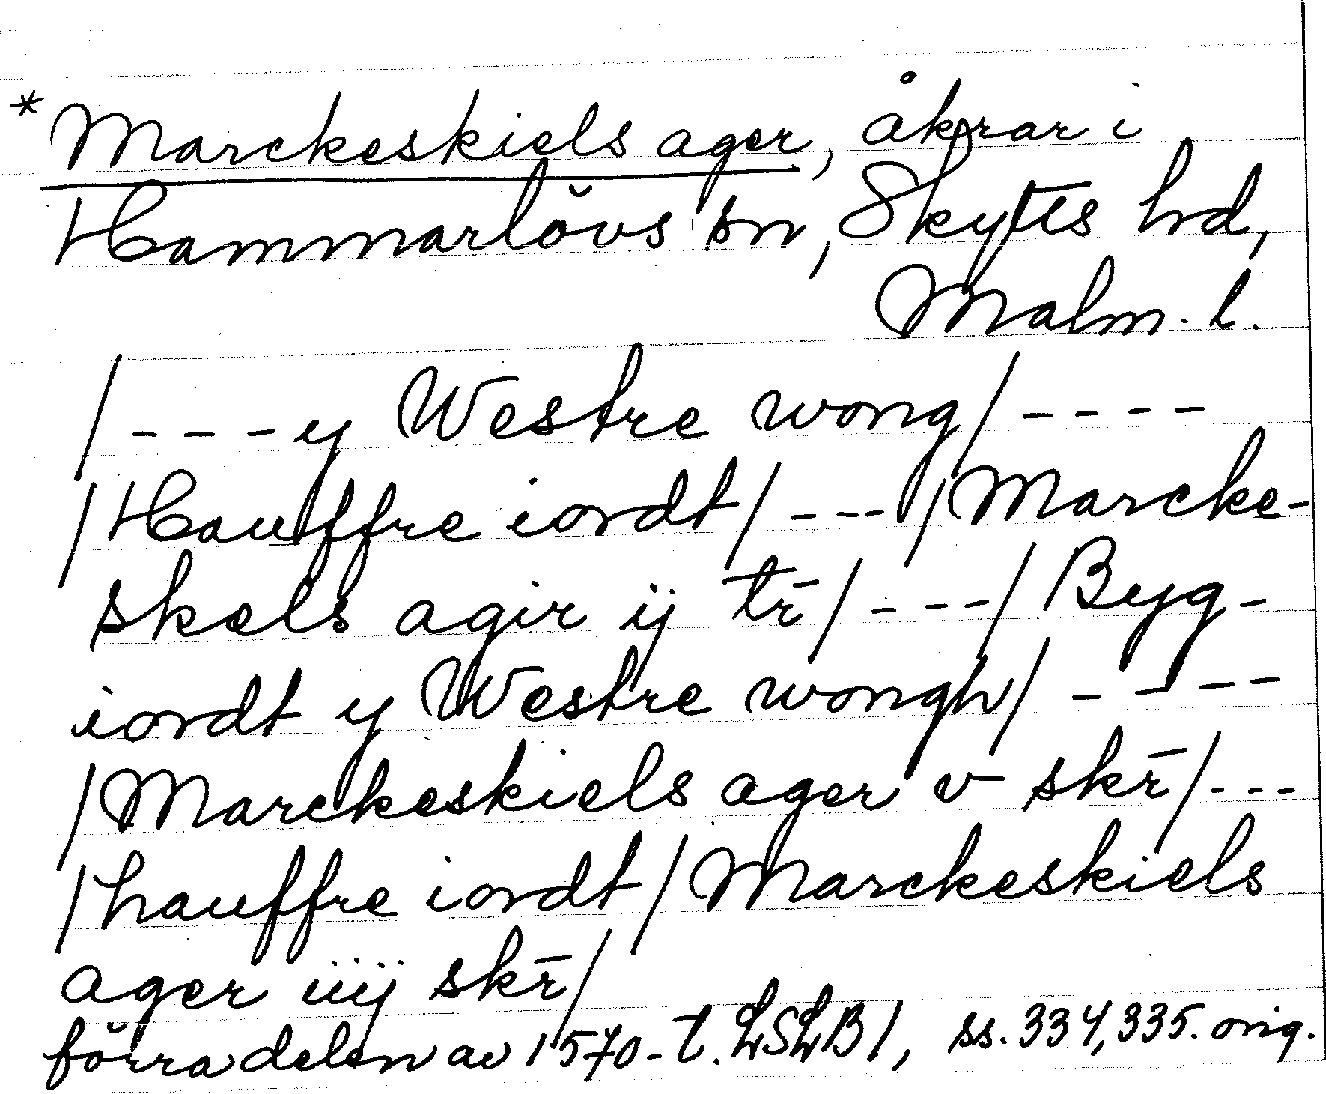 * Marckeskiels ager, åkrar i
Hammarlövs sn, Skytts hd,
Malm. l.
/---y Westre wong/----
/Hauffre iordt/---/Marcke-
skels agir ij tr̄/---/Byg-
iordt y Westre wongh/----
/Marckeskiels ager v skr̄/---
/hauffre iordt/Marckeskiels
ager iiij skr̄/
förra delen av 1570-t. LSLB1, ss. 334, 335. orig.